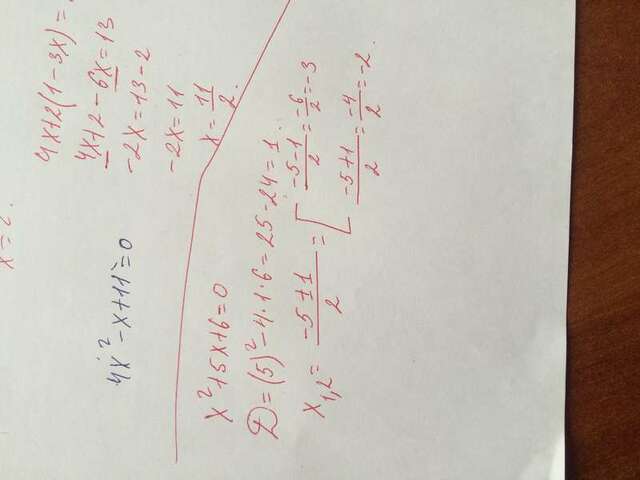 x = 2.
4x+2(1-3x)=
4x+2-6x=13
-2x=13-2
-2x=11
x=11/2.
4x²-x+11=0
x²+5x+6=0
D=(5)²-4·1·6=25-24=1.
x1,2= (-5±1)/2 = [ (-5-1)/2 = -6/2 = -3
(-5+1)/2 = -4/2 = -2.